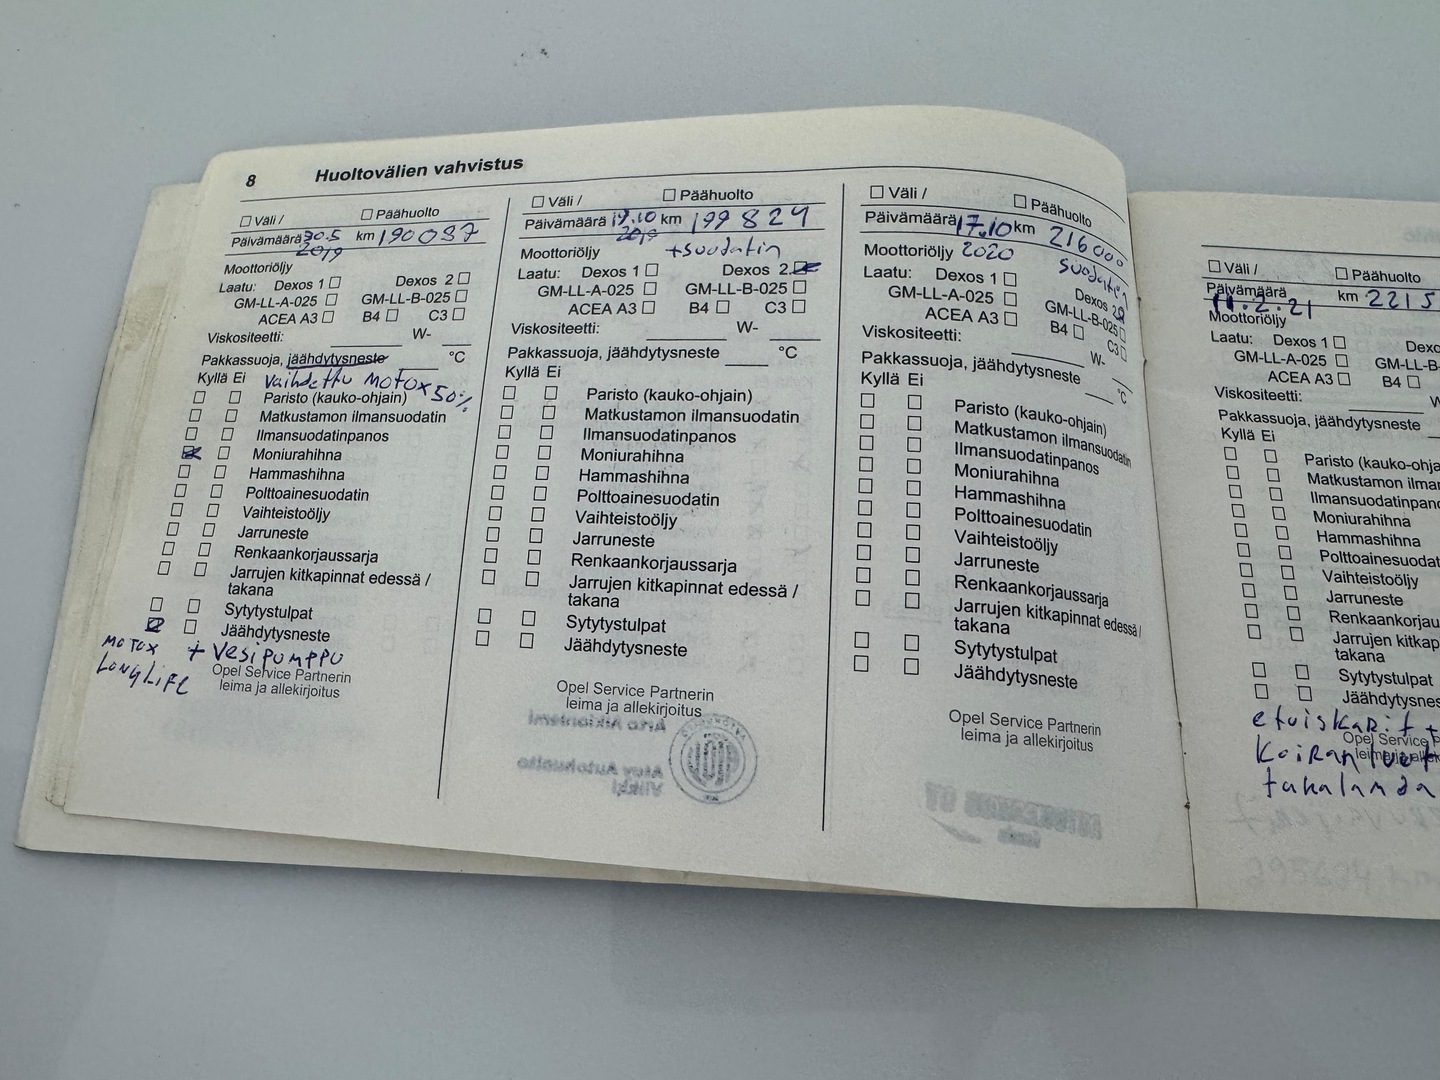 8 Huoltovälien vahvistus
Väli / Päähuolto
Päivämäärä 30.5 km 190087
2019
Moottoriöljy
Laatu: Dexos 1 Dexos 2
GM-LL-A-025 GM-LL-B-025
ACEA A3 B4 C3
Viskositeetti: W-
Pakkassuoja, jäähdytysneste °C
Vaihdettu MOTOX 50%
Kyllä Ei
Paristo (kauko-ohjain)
Matkustamon ilmansuodatin
Ilmansuodatinpanos
Moniurahihna
Hammashihna
Polttoainesuodatin
Vaihteistoöljy
Jarruneste
Renkaankorjaussarja
Jarrujen kitkapinnat edessä /
takana
Sytytystulpat
Jäähdytysneste
MOTOX + Vesipumppu
LONGLIFE
Opel Service Partnerin
leima ja allekirjoitus
Väli / Päähuolto
Päivämäärä 19.10 km 199824
2019
Moottoriöljy +suodatin
Laatu: Dexos 1 Dexos 2
GM-LL-A-025 GM-LL-B-025
ACEA A3 B4 C3
Viskositeetti: W-
Pakkassuoja, jäähdytysneste °C
Kyllä Ei
Paristo (kauko-ohjain)
Matkustamon ilmansuodatin
Ilmansuodatinpanos
Moniurahihna
Hammashihna
Polttoainesuodatin
Vaihteistoöljy
Jarruneste
Renkaankorjaussarja
Jarrujen kitkapinnat edessä /
takana
Sytytystulpat
Jäähdytysneste
Opel Service Partnerin
leima ja allekirjoitus
Väli / Päähuolto
Päivämäärä 17.10 km 216000
Moottoriöljy 2020
Laatu: Dexos 1 Dexos 2
GM-LL-A-025 GM-LL-B-025
ACEA A3 B4 C3
Viskositeetti: W-
Pakkassuoja, jäähdytysneste °C
Kyllä Ei
Paristo (kauko-ohjain)
Matkustamon ilmansuodatin
Ilmansuodatinpanos
Moniurahihna
Hammashihna
Polttoainesuodatin
Vaihteistoöljy
Jarruneste
Renkaankorjaussarja
Jarrujen kitkapinnat edessä /
takana
Sytytystulpat
Jäähdytysneste
Opel Service Partnerin
leima ja allekirjoitus
Väli / Päähuolto
Päivämäärä km 2215
11.2.21
Moottoriöljy
Laatu: Dexos 1 Dexo
GM-LL-A-025 GM-L
ACEA A3 B4
Viskositeetti: W
Pakkassuoja, jäähdytysneste
Kyllä Ei
Paristo (kauko-ohja
Matkustamon ilmar
Ilmansuodatinpano
Moniurahihna
Hammashihna
Polttoainesuodat
Vaihteistoöljy
Jarruneste
Renkaankorjau
Jarrujen kitkap
takana
Sytytystulpat
Jäähdytysnes
etuiskarit +
Opel Service P
Koiranluut
takalanda